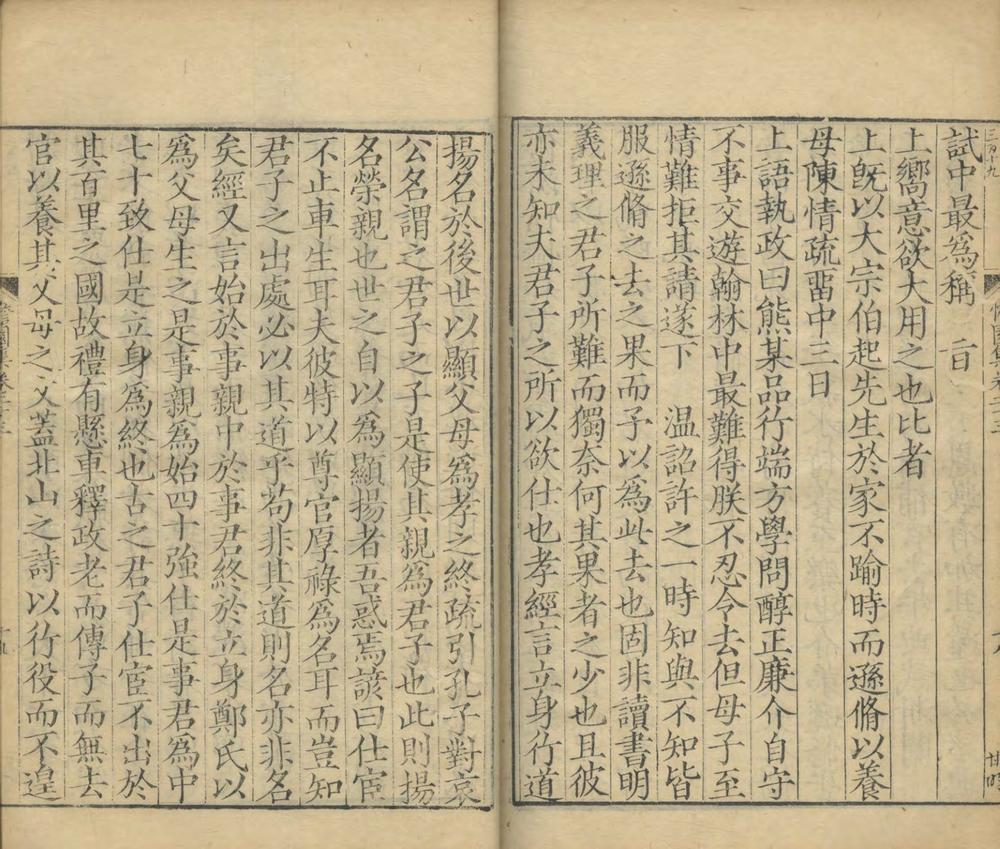 試中最爲稱 旨
上嚮意欲大用之也比者
上旣以大宗伯起先生於家不踰時而遜脩以養
母陳情疏畱中三日
上語執政曰熊某品行端方學問醇正廉介自守
不事交遊翰林中最難得朕不忍令去但母子至
情難拒其請遂下 溫詔許之一時知與不知皆
服遜脩之去之果而予以爲此去也固非讀書明
義理之君子所難而獨奈何其果者之少也且彼
亦未知夫君子之所以欲仕也孝經言立身行道
揚名於後世以顯父母爲孝之終疏引孔子對哀
公名謂之君子之子是使其親爲君子也此則揚
名榮親也世之自以爲顯揚者吾惑焉諺曰仕宦
不止車生耳夫彼特以尊官厚祿爲名耳而豈知
君子之出處必以其道乎苟非其道則名亦非名
矣經又言始於事親中於事君終於立身鄭氏以
爲父母生之是事親爲始四十強仕是事君爲中
七十致仕是立身爲終也古之君子仕宦不出於
其百里之國故禮有懸車釋政老而傳子而無去
官以養其父母之文蓋北山之詩以行役而不遑
十九